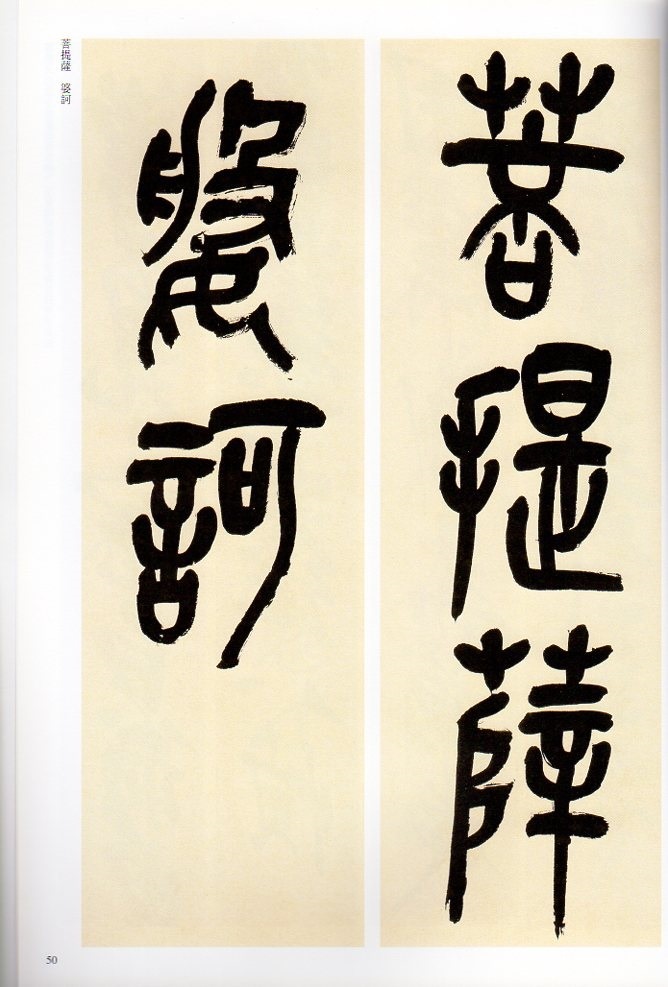 菩提薩
婆訶
菩提薩 婆訶
50